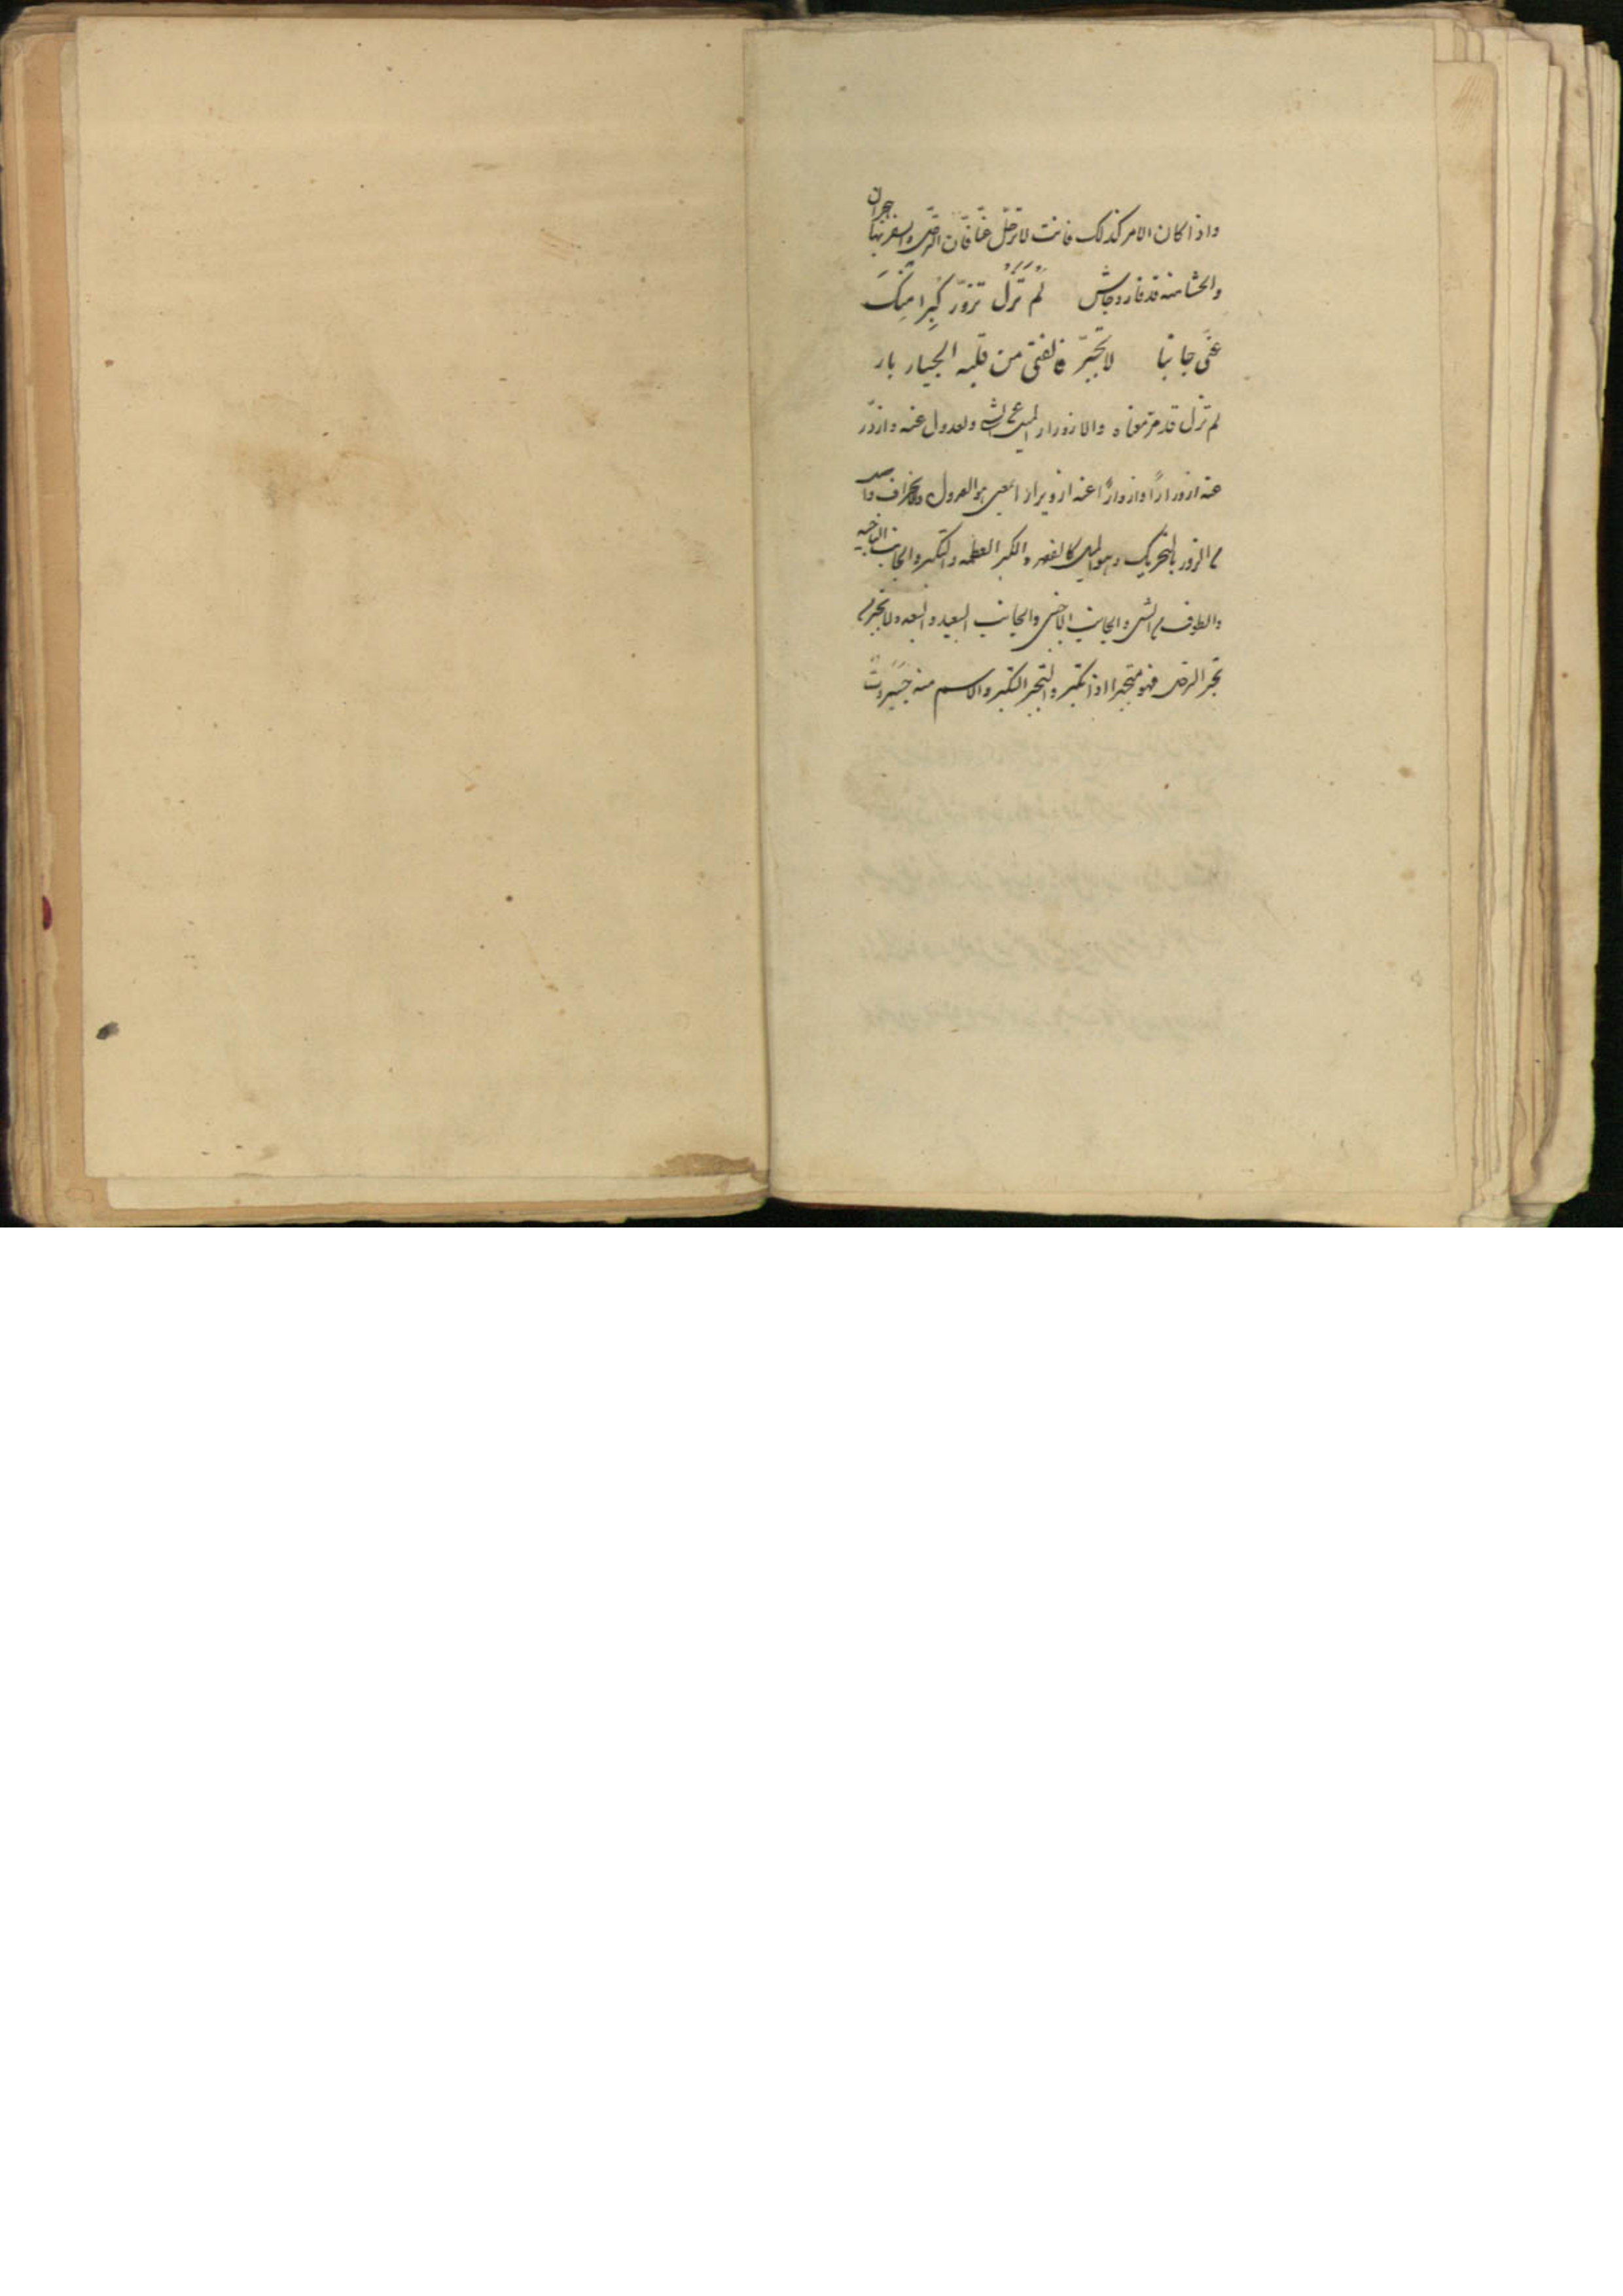 واذا كان الامر كذلك فانت لا ترحّل عنّا فانّ الترحّل والسفر بنا حجران
والحشا منه قد فار وجاش لَم تَزَل تزوَرّ كِبرا مِنكَ
عنّي جانبا لا تجبّر فالفتى من قلبه الجبار بار
لم تزل قد مرّ معناه والازورار الميل عن الشئ والعدول عنه وازوَرّ
عنه ازورارًا وازوارّ عنه ازويرارا بمعنى هو العدول والانحراف
من الزور بالتحريك وهو الميل كالصعر والكبر العظمة والتكبر والجانب الناحية
والطرف من الشئ والجانب الاجنبي والجانب البعيد والبعد ولا تجبر من
تجبر الرجل فهو متجبر اذا تكبر والتجبر التكبر والاسم منه جبروت